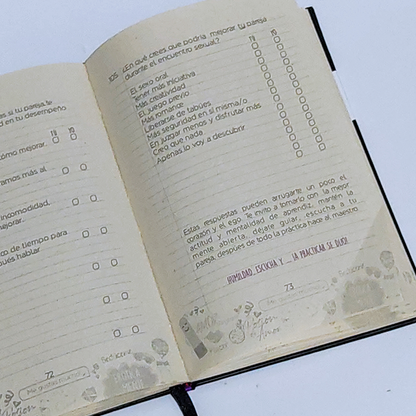 as si tu pareja te
d en tu desempeño
TÚ YO
cómo mejorar.
amos más al
incomodidad,
ejorar.
co de tiempo para
ués hablar
72
105. ¿En qué crees que podría mejorar tu pareja
durante el encuentro sexual?
TÚ YO
El sexo oral
Tener más iniciativa
Más creatividad
El juego previo
Más romance
Liberarse de tabúes
Más seguridad en sí misma/o
En juzgar menos y disfrutar más
Creo que nada
Apenas lo voy a descubrir
Estas respuestas pueden arrugarte un poco el
corazón y el ego. Te invito a tomarlo con la mejor
actitud y mentalidad de aprendiz, mantén la
mente abierta, déjate guiar, escucha a tu
pareja, después de todo la práctica hace al maestro.
HUMILDAD, ESCUCHA Y ... LA PRACTICAR SE DIJO!
73